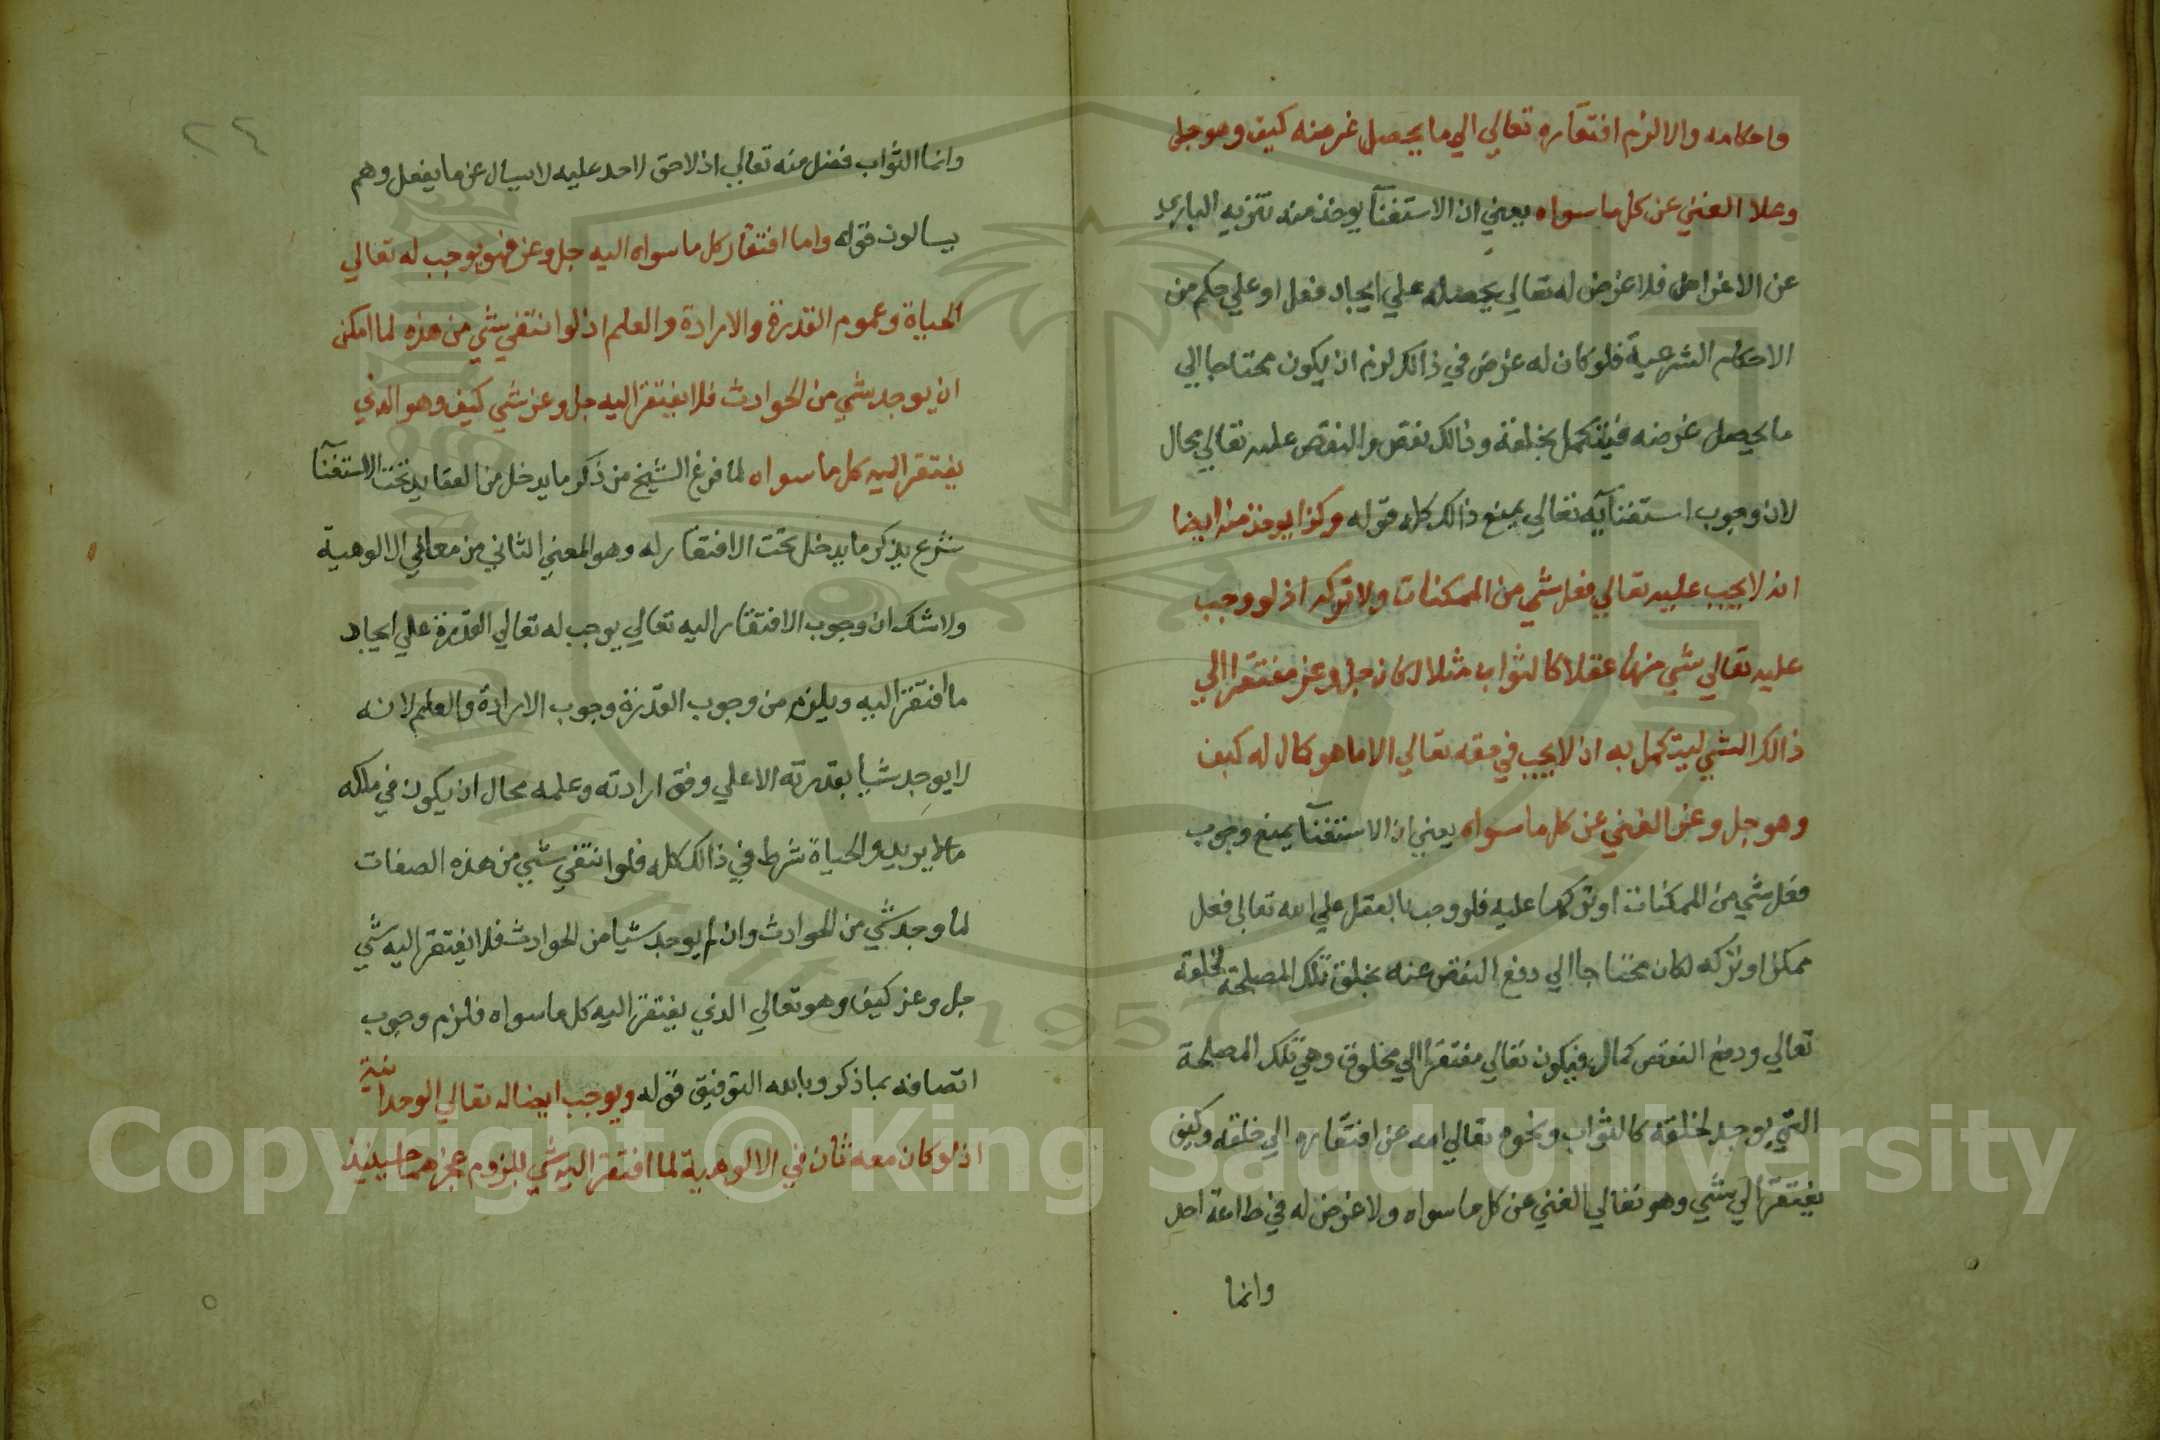 واحكامه والا لزم افتقاره تعالي الي ما يحصل غرضه كيف وهو جل
وعلا الغني عن كل ما سواه يعني ان الاستغنآ يوخذ منه تنزيه الباري
عن الاغراض فلا غرض له تعالي يحصله علي ايجاد فعل او علي حكم من
الاحكام الشرعية فلو كان له غرض في ذالك لزم ان يكون محتاجا الي
ما يحصل غرضه فيتكمل بخلقه وذالك نقص والنقص عليه تعالي محال
لان وجوب استغنآيه تعالي يمنع ذالك كله قوله وكذا يوخذ منه ايضا
انه لا يجب عليه تعالي فعل شي من الممكنات ولا تركه اذ لو وجب
عليه تعالي شي منها عقلا كالثواب مثلا لكان جل وعز مفتقرا الي
ذالك الشي ليتكمل به اذ لا يجب في حقه تعالي الا ما هو كمال له كيف
وهو جل وعز الغني عن كل ما سواه يعني ان الاستغنآ يمنع وجوب
فعل شي من الممكنات او تركها عليه فلو وجب بالعقل علي الله تعالي فعل
ممكن او تركه لكان محتاجا الي دفع النقص عنه بخلق تلك المصلحة لخلقه
تعالي ودفع النقص كمال فيكون تعالي مفتقرا الي مخلوق وهي تلك المصلحة
التي يوجد لخلقه كالثواب ونحوه تعالي الله عن افتقاره الي خلقه وكيف
يفتقر الي شي وهو تعالي الغني عن كل ما سواه ولا غرض له في طاعة احد
وانما
٢٤
وانما الثواب فضل منه تعالي اذ لا حق لاحد عليه لا يسال عن ما يفعل وهم
يسالون قوله واما افتقار كل ما سواه اليه جل وعز فهو يوجب له تعالي
الحياة وعموم القدرة والارادة والعلم اذ لو انتفي شي من هذه لما امكن
ان يوجد شي من الحوادث فلا يفتقر اليه جل وعز شي كيف وهو الذي
يفتقر اليه كل ما سواه لما فرغ الشيخ من ذكر ما يدخل من العقايد تحت الاستغنآ
شرع يذكر ما يدخل تحت الافتقار له وهو المعني الثاني من معاني الالوهية
ولا شك ان وجوب الافتقار اليه تعالي يوجب له تعالي القدرة علي ايجاد
ما افتقر اليه ويلزم من وجوب القدرة وجوب الارادة والعلم لانه
لا يوجد شيا بقدرته الا علي وفق ارادته وعلمه محال ان يكون في ملكه
ما لا يريد والحياة شرط في ذالك كله فلو انتفي شي من هذه الصفات
لما وجد شي من الحوادث وان لم يوجد شيا من الحوادث فلا يفتقر اليه شي
جل وعز كيف وهو تعالي الذي يفتقر اليه كل ما سواه فلزم وجوب
اتصافه بما ذكر وبالله التوفيق قوله ويوجب ايضا له تعالي الوحدانية
اذ لو كان معه ثان في الالوهية لما افتقر اليه شي للزوم عجزهما حينيذ
Copyright © King Saud University
1957